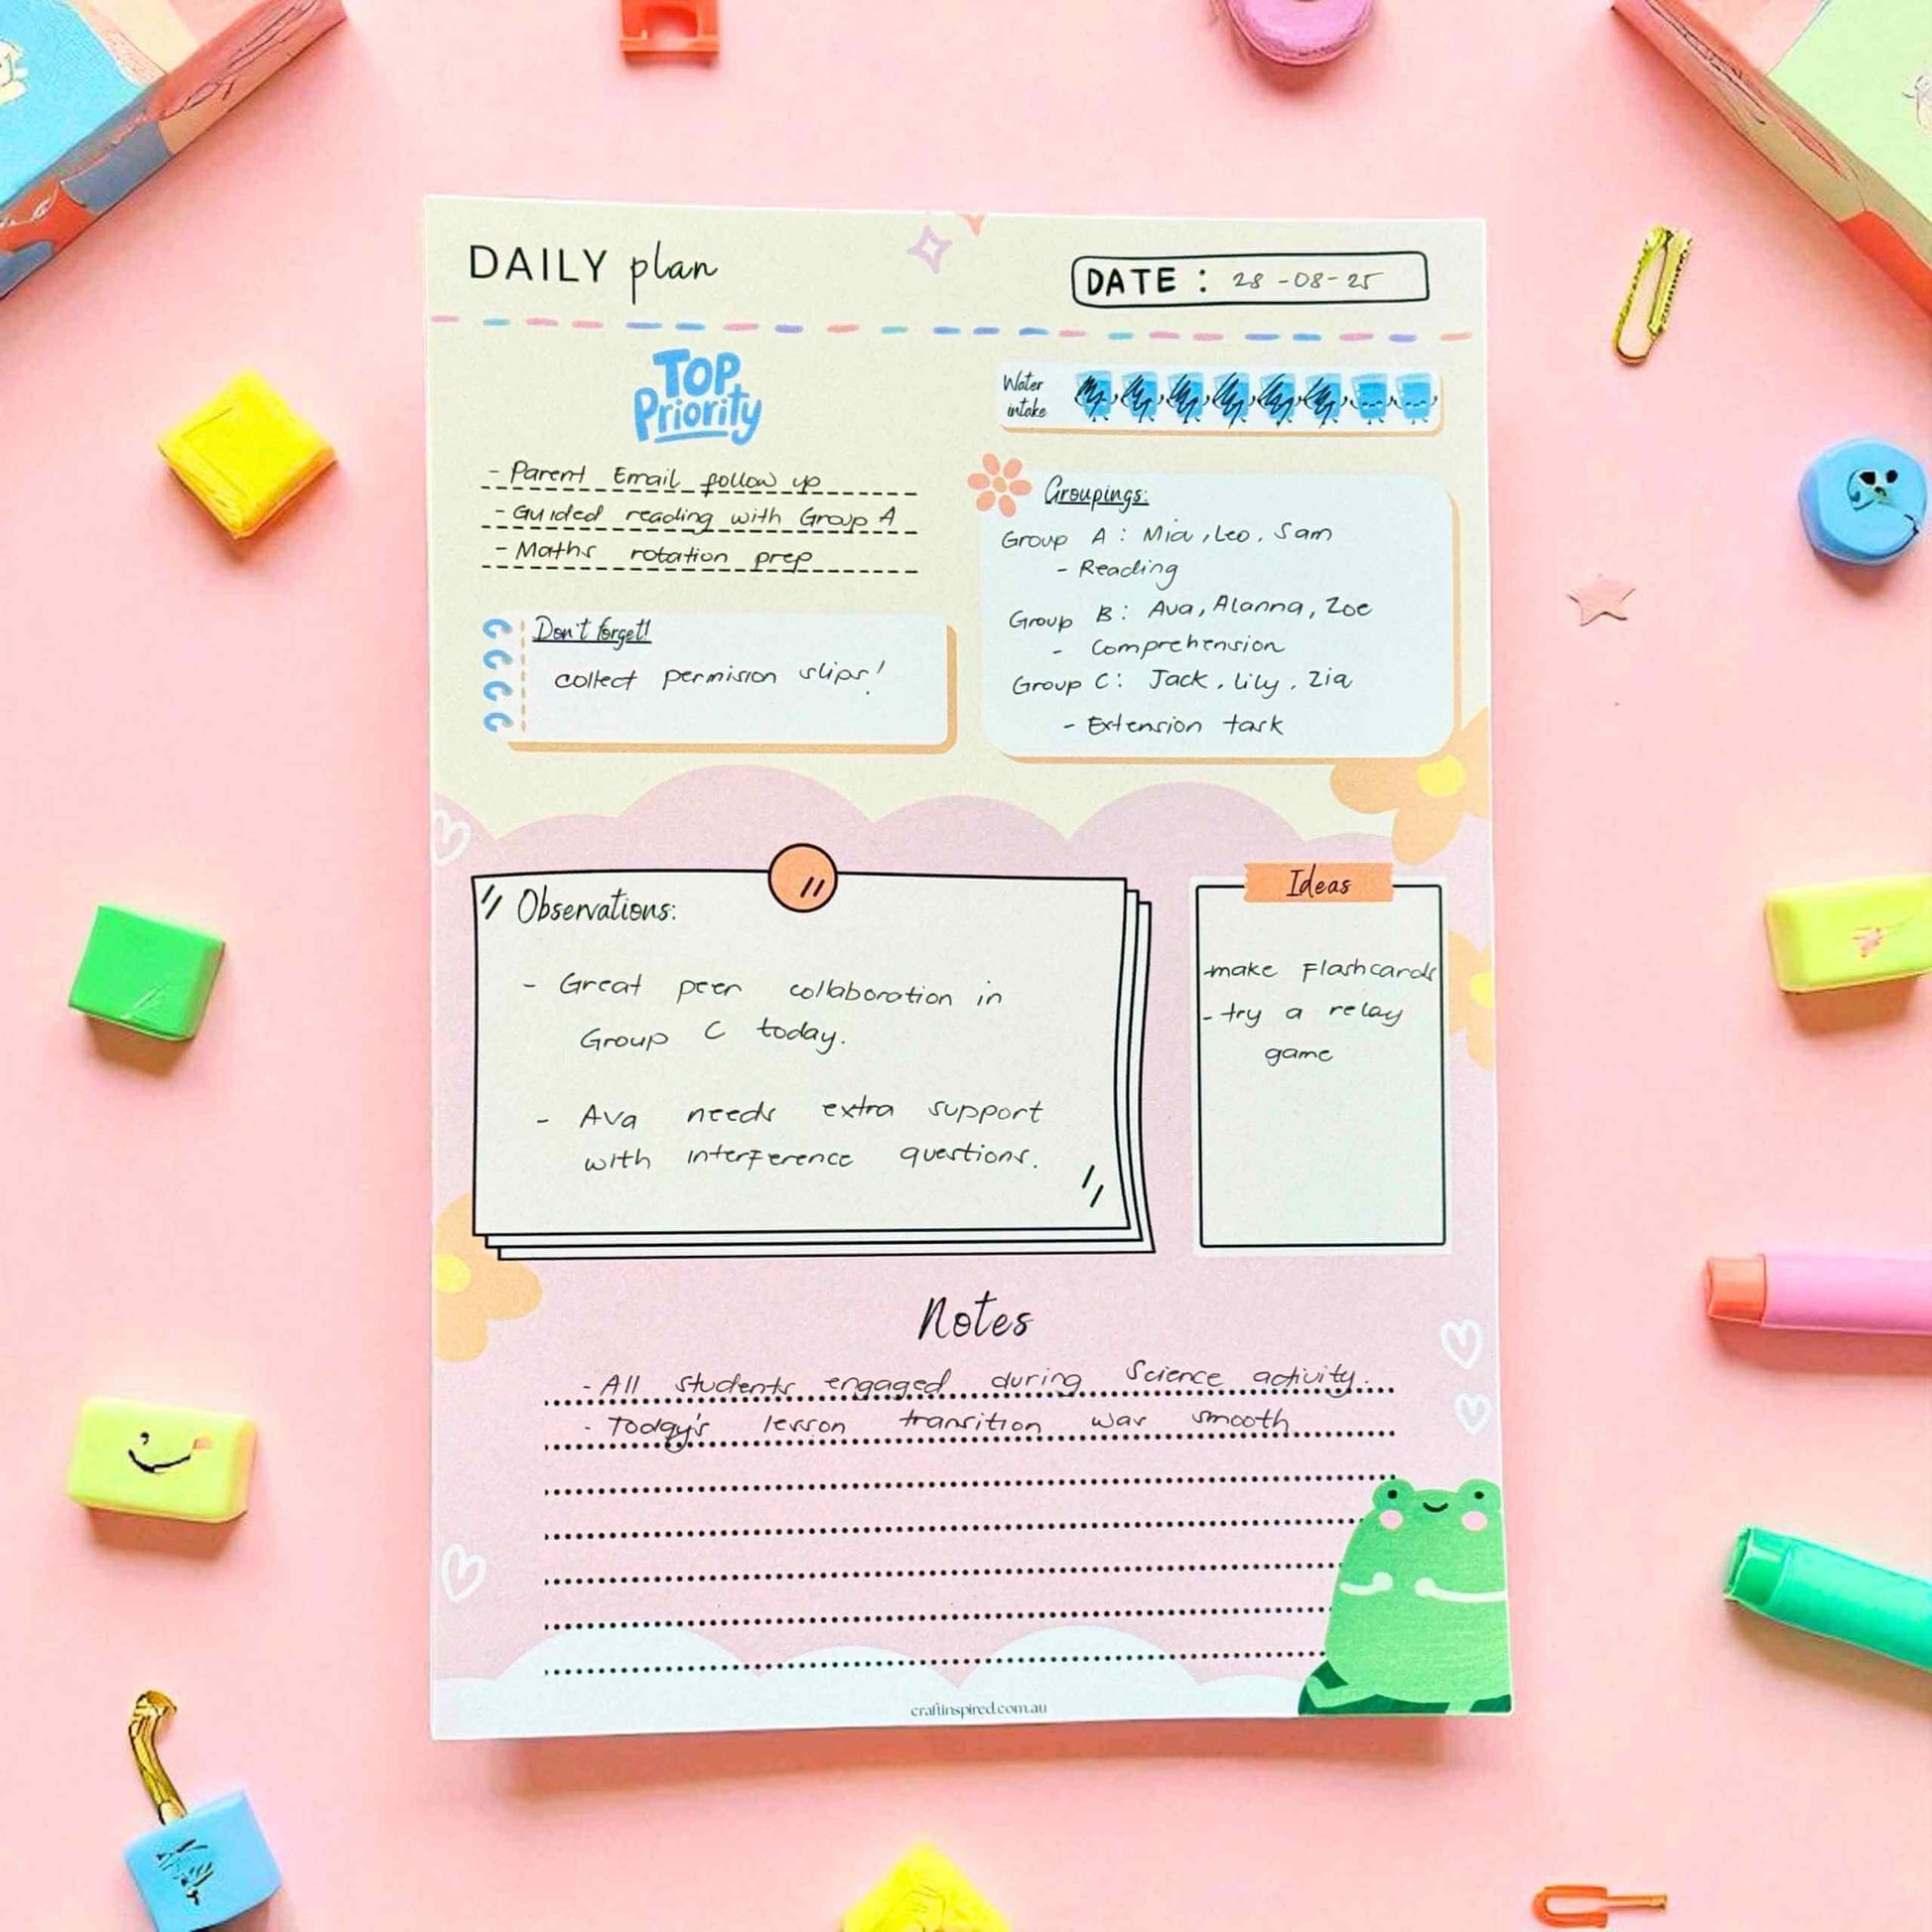 DAILY plan
DATE : 28-08-25
TOP
Priority
Water
intake
- Parent Email follow up
- Guided reading with Group A
- Maths rotation prep
Groupings:
Group A : Mia, Leo, Sam
- Reading
Group B : Ava, Alanna, Zoe
- Comprehension
Group C : Jack, Lily, Zia
- Extension task
Don't forget!
collect permision slips!
Observations:
- Great peer collaboration in
Group C today.
- Ava needs extra support
with interference questions.
Ideas
-make Flashcards
- try a relay
game
Notes
- All students engaged during Science activity.
- Today's lesson transition was smooth
craftinspired.com.au